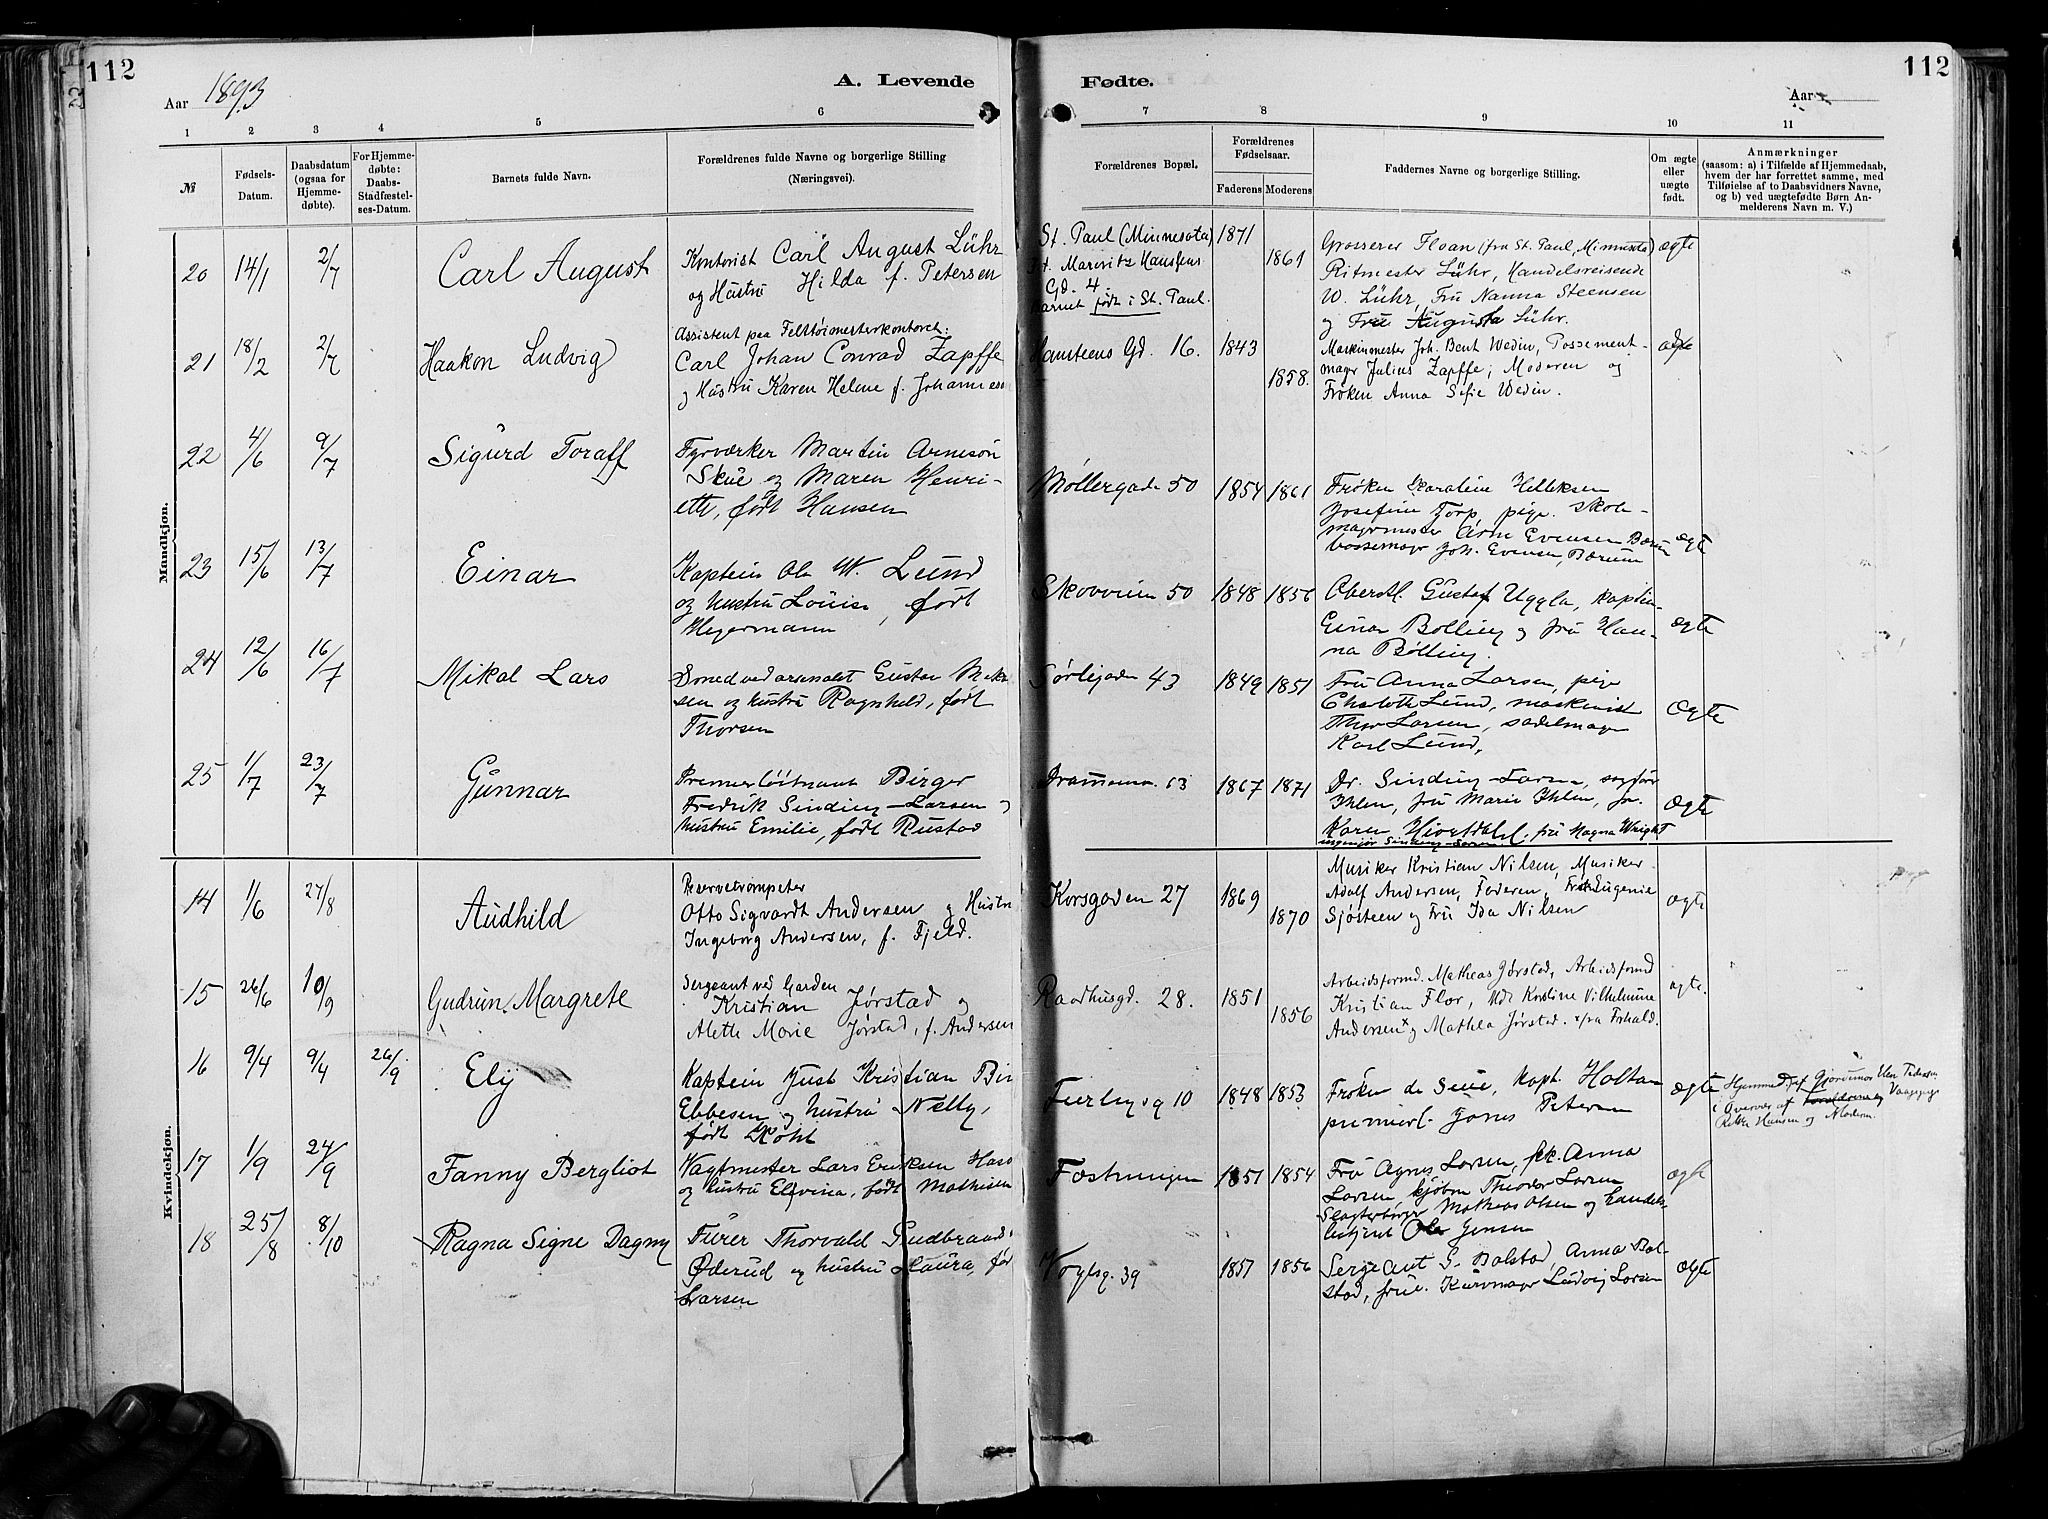 112
Aar 1893
A. Levende
Fødte.
Aar
112
1 2 3 4 5 6 7 8 9 10 11
№
Fødsels-
Datum.
Daabsdatum
(ogsaa for
Hjemme-
døbte).
For Hjemme-
døbte:
Daabs-
Stadfæstel-
ses-Datum.
Barnets fulde Navn.
Forældrenes fulde Navne og borgerlige Stilling
(Næringsvei).
Forældrenes Bopæl.
Forældrenes
Fødselsaar.
Faderens Moderens
Faddernes Navne og borgerlige Stilling.
Om ægte
eller
uægte
født.
Anmærkninger
(saasom: a) i Tilfælde af Hjemmedaab,
hvem der har forrettet samme, med
Tilføielse af to Daabsvidners Navne,
og b) ved uægtefødte Børn An-
melderens Navn m. V.)
Mandkjøn.
20 14/1 2/7 Carl August
Kontorist Carl August Lühr
og Hustru Hilda f. Petersen
St. Paul (Minnesota)
Marcvitz Hansens
Gd. 4.
født i St. Paul.
1871 1861
Grosserer Floan (fra St. Paul, Minnesota)
Ritmester Lühr, Handelsreisende
W. Lühr, Fru Nanna Steensen
og Frue Augusta Lühr.
ægte
21 18/2 2/7 Haakon Ludvig
Assistent paa Felttøimesterkontoret:
Carl Johan Conrad Zapffe
og Hustru Karen Helene f. Johannesen
Hansteens Gd. 16. 1843 1858.
Maskinmester Joh. Bent Wedin, Possement-
mager Julius Zapffe; Moderen og
Frøken Anna Sofie Wedin.
ægte
22 4/6 9/7 Sigurd Toralf
Fyrværker Martin Arneson
Skue og Maren Henri-
ette, født Hansen
Møllergade 50 1854 1861
Frøken Karoline Hellesen
Josefine Torp, pige. Skole-
magermester Arne Evensen Bærum
bøssemager Joh. Evensen, Bærum
ægte
23 15/6 13/7 Einar
Kaptein Ole W. Lund
og hustru Louise, født
Hegermann
Skovveien 50 1848 1856
Oberstl. Gustaf Uggla, kaptein
Einar Bølling og fru Han-
na Bølling.
ægte
24 12/6 16/7 Mikal Lars
Smed ved arsenalet Gustav Mik
sen og hustru Ragnhild, født
Thorsen
Sørligaden 43 1849 1851
Fru Anna Larsen, pige
Charlotte Lund, maskinist
Thor Larsen, sadelmager
Karl Lund,
Ægte
25 1/7 23/7 Gunnar
Premierløitnant Birger
Fredrik Sinding-Larsen og
hustru Emilie, født Rustad
Drammensv. 63 1867 1871
Dr. Sinding-Larsen, sagfører
Ihlen, fru Marie Ihlen, fr.
Karen Hiortdahl, fru Magna Wright
ingeniør Sinding-Larsen
Ægte
Kvindekjøn.
14 1/6 27/8 Audhild
Reservetrompeter
Otto Sigvardt Andersen og Hustru
Ingeborg Andersen, f. Fjeld.
Korsgaden 27 1869 1870
Musiker Kristian Nilsen, Musiker
Adolf Andersen, Faderen, Frk. Eugenie
Sjøsteen og Fru Ida Nilsen
ægte
15 26/6 10/9 Gudrun Margrete
Sergeant ved Garden
Kristian Jørstad og
Alette Marie Jørstad, f. Andersen
Raadhusgd. 28. 1851 1856
Arbeidsformd. Mathias Jørstad, Arbeidsformd
Kristian Flor, Md. Kristine Vilhelmine
Andersen x og Mathea Jørstad. x fra Frhald.
ægte.
16 9/4 9/4 26/9 Ely
Kaptein Just Kristian Bir
Ebbesen og hustru Nelly,
født Kohl
1848 1853
Frøken de Seue, kapt. Holtan
premierl. Jøns Petersen
ægte
Hjemmed. af Gjordemor
i Overvær af
Hansen og Moderen.
17 1/9 24/9 Fanny Bergliot
Vagtmester Lars Eriksen Haso
og hustru Elevina, født Mathisen
Fæstningen 1851 1854
Fru Agnes Larsen, frk. Anna
Larsen, kjøbm. Theodor Larsen
Slagterborger Mathias Olsen og handels-
betjent Ole Jensen
ægte
18 25/8 8/10 Ragna Signe Dagny
Furer Thorvald Gudbrands
Øderud og hustru Laura, fø
Larsen
Vogtsg. 39 1857 1856
Sergeant G. Bolstad, Anna Bol-
stad, frue. Kurvmager Ludvig Larsen
Ægte